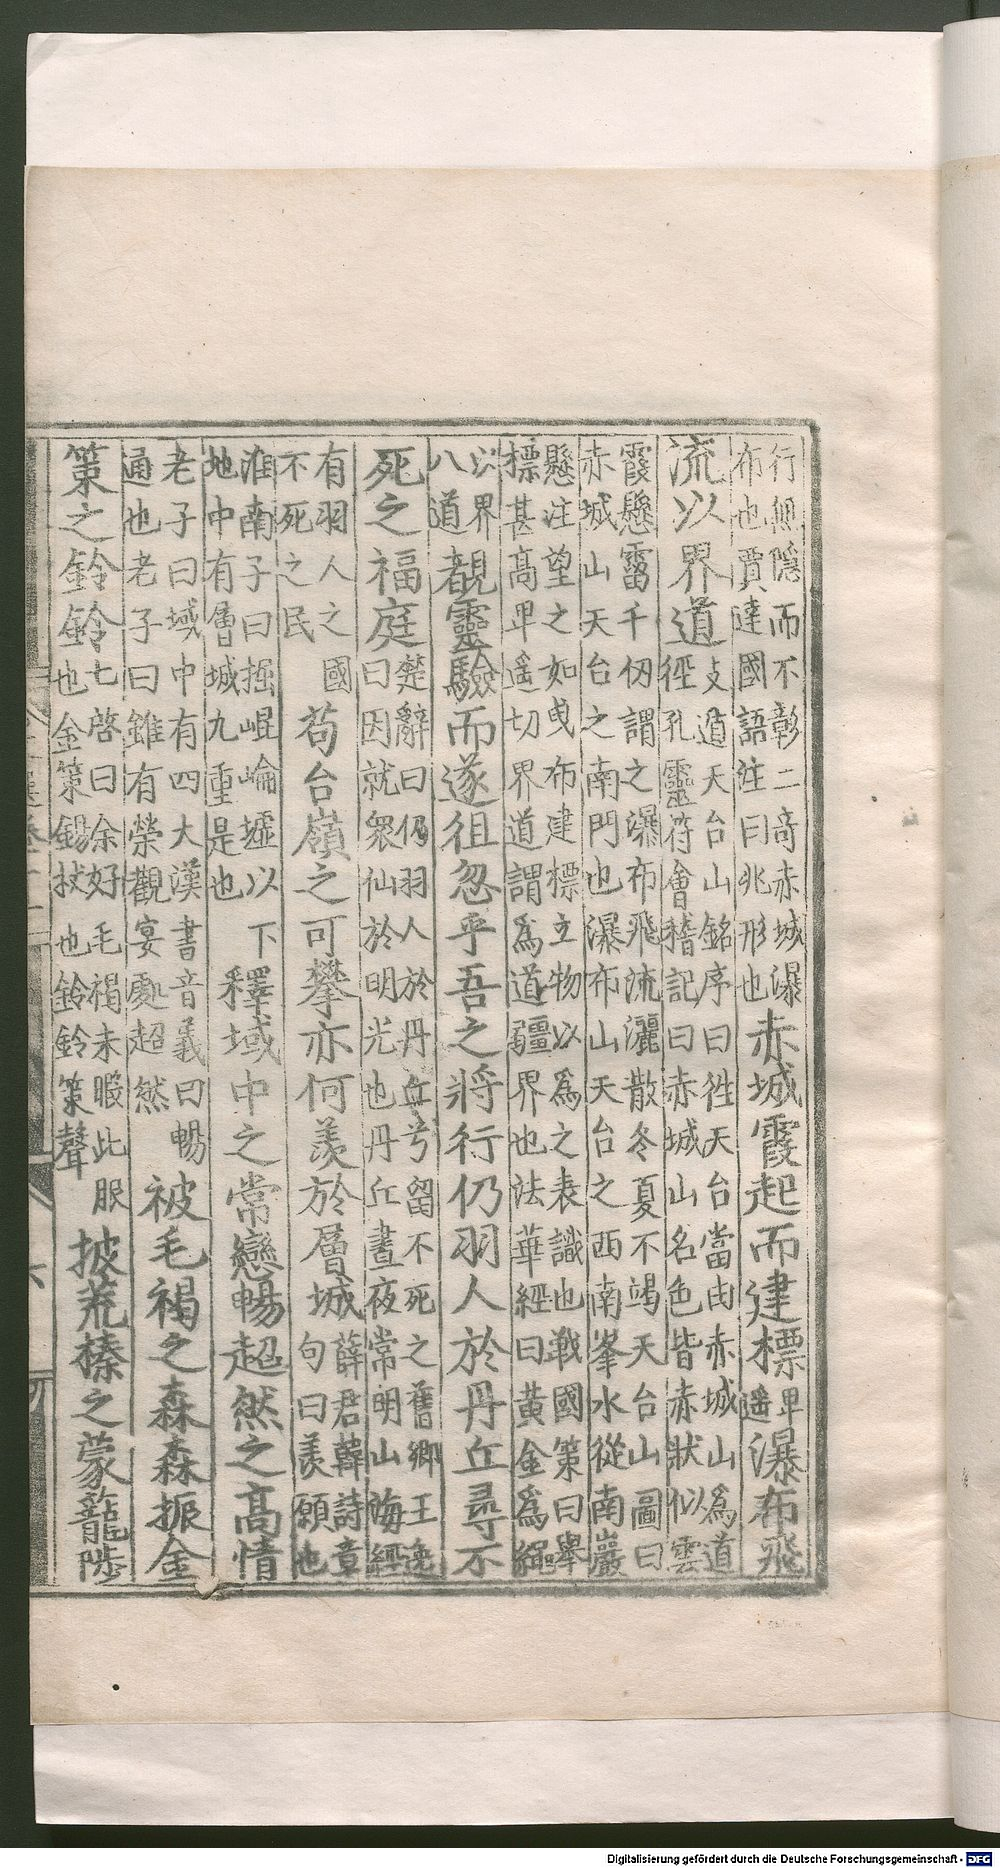 行無隱而不彰二奇赤城瀑布也賈逵國語注曰兆形也赤城霞起而建標卑遥瀑布飛
流以界道支遁天台山銘序曰往天台當由赤城山爲道徑孔靈符會稽記曰赤城山名色皆赤狀似雲
霞懸霤千仞謂之瀑布飛流灑散冬夏不竭天台山圖曰赤城山天台之南門也瀑布山天台之西南峯水從南巖
懸注望之如曵布建標立物以爲之表識也戰國策曰舉標甚高卑遥切界道謂爲道疆界也法華經曰黃金爲繩
以界八道覩靈驗而遂徂忽乎吾之將行仍羽人於丹丘尋不
死之福庭楚辭曰仍羽人於丹丘兮留不死之舊鄉王逸曰因就衆仙於明光也丹丘晝夜常明山海經
有羽人之國不死之民苟台嶺之可攀亦何羨於層城薛君韓詩章句曰羨願也
淮南子曰掘崐崘墟以下地中有層城九重是也釋域中之常戀暢超然之高情
老子曰域中有四大漢書音義曰暢通也老子曰雖有榮觀宴處超然被毛褐之森森振金
策之鈴鈴七啓曰余好毛褐未暇此服也金策錫杖也鈴鈴策聲披荒榛之蒙蘢陟
Digitalisierung gefördert durch die Deutsche Forschungsgemeinschaft - DFG